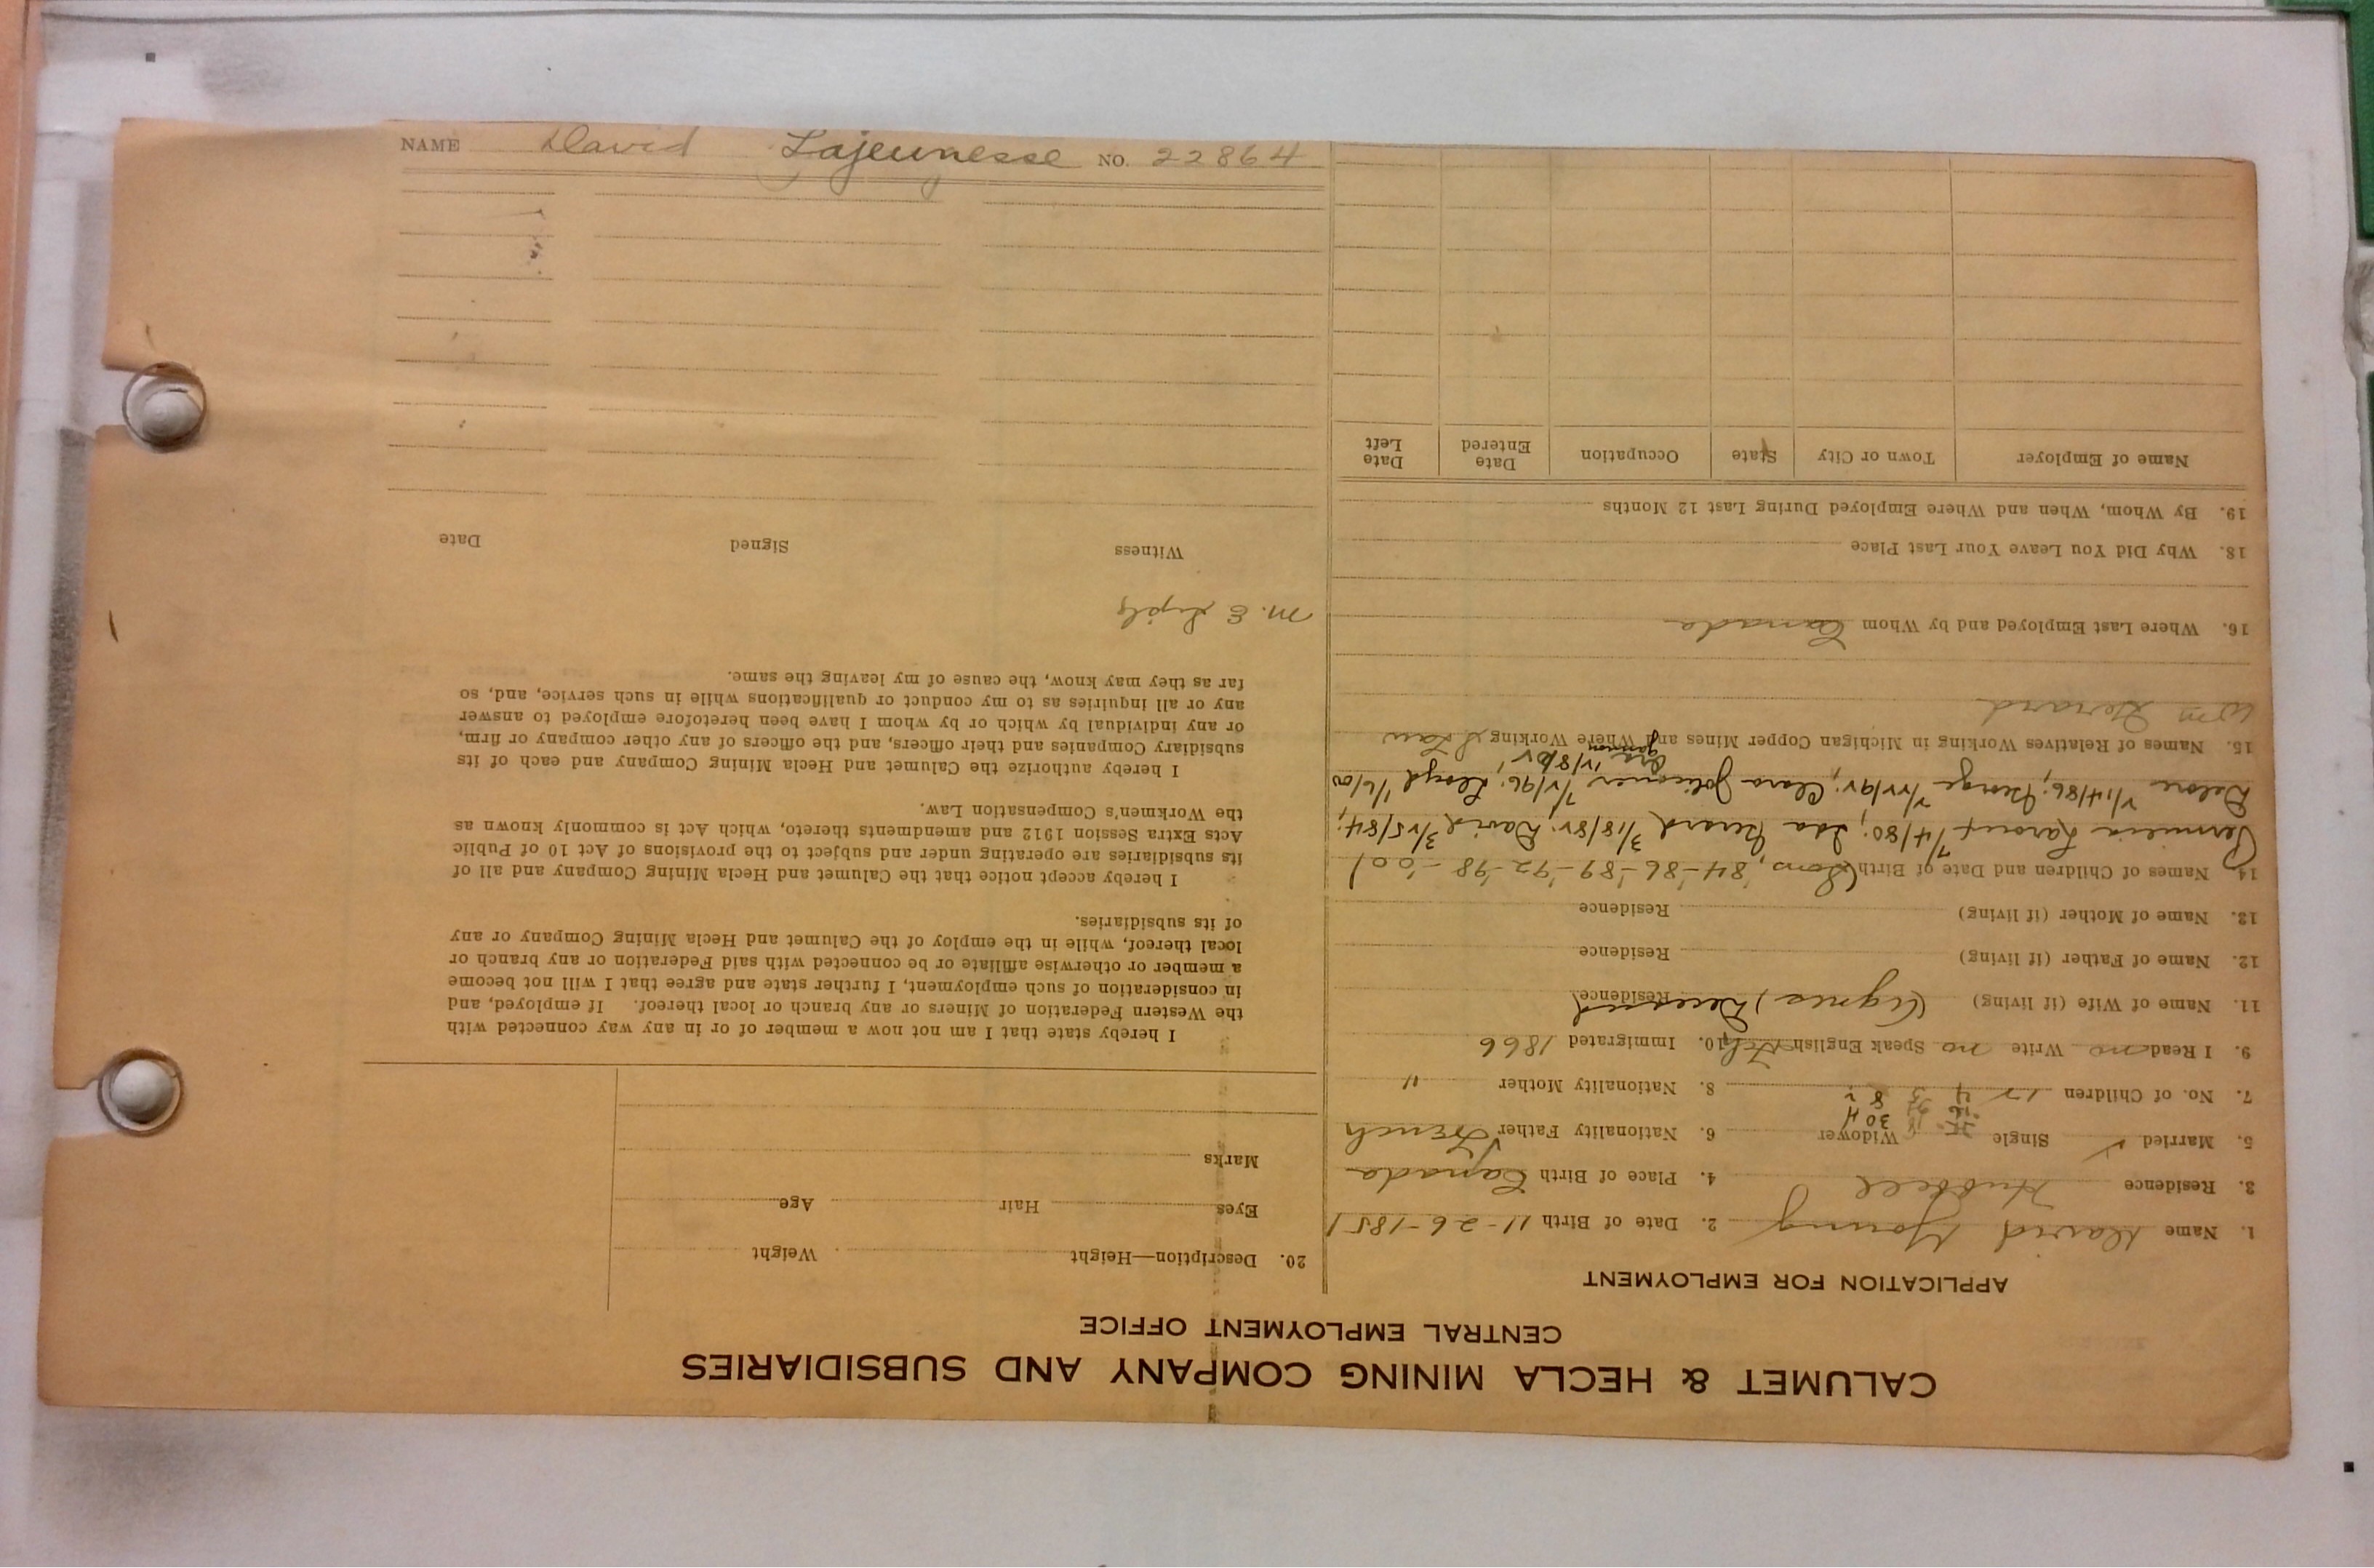 CALUMET & HECLA MINING COMPANY AND SUBSIDIARIES
CENTRAL EMPLOYMENT OFFICE
APPLICATION FOR EMPLOYMENT
1. Name David Young 2. Date of Birth 11-26-1851
3. Residence Hubbell 4. Place of Birth Canada
5. Married ✓ Single Widower 6. Nationality Father French
7. No. of Children 12 8. Nationality Mother "
9. I Read no Write no Speak English 10. Immigrated 1866
11. Name of Wife (if living) (Agnes) Deceased Residence
12. Name of Father (if living) Residence
13. Name of Mother (if living) Residence
14. Names of Children and Date of Birth (Sons, 84-'86-'89-'92-'98-'00)
7/4/80; Ida Gerard 3/18/82; David 3/25/84;
Delore 2/14/86; George 2/22/92; Clara 7/2/96; Lloyd 1/6/00
15. Names of Relatives Working in Michigan Copper Mines and Where Working S Law
Wm Gerard
16. Where Last Employed and by Whom Canada
18. Why Did You Leave Your Last Place
19. By Whom, When and Where Employed During Last 12 Months
Name of Employer Town or City State Occupation Date Entered Date Left
20. Description—Height Weight
Eyes Hair Age
Marks
I hereby state that I am not now a member of or in any way connected with
the Western Federation of Miners or any branch or local thereof. If employed, and
in consideration of such employment, I further state and agree that I will not become
a member or otherwise affiliate or be connected with said Federation or any branch or
local thereof, while in the employ of the Calumet and Hecla Mining Company or any
of its subsidiaries.
I hereby accept notice that the Calumet and Hecla Mining Company and all of
its subsidiaries are operating under and subject to the provisions of Act 10 of Public
Acts Extra Session 1912 and amendments thereto, which Act is commonly known as
the Workmen's Compensation Law.
I hereby authorize the Calumet and Hecla Mining Company and each of its
subsidiary Companies and their officers, and the officers of any other company or firm,
or any individual by which or by whom I have been heretofore employed to answer
any or all inquiries as to my conduct or qualifications while in such service, and, so
far as they may know, the cause of my leaving the same.
M. E.
Witness Signed Date
NAME David Lajeunesse NO. 22864